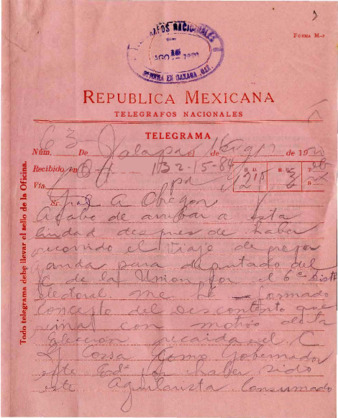 TELEGRAFOS NACIONALES
AGO
OFICINA EN OAXACA, OAX.
REPUBLICA MEXICANA
TELEGRAFOS NACIONALES
TELEGRAMA
63
Núm. De Jalapa de 16 Agto de 19
Recibido en
Vía
Todo telegrama debe llevar el sello de la Oficina.
A. Obregon
Acabo de arribar a esta
ciudad despues de haber
recorrido el viaje de propa
ganda para diputado del
C de la Union por el 6o
electoral me he formado
concepto del descontento que
reina con motivo de la
eleccion recaida en el C
L Cossa como Gobernador
este Edo por haber sido
este Aguilarista consumado